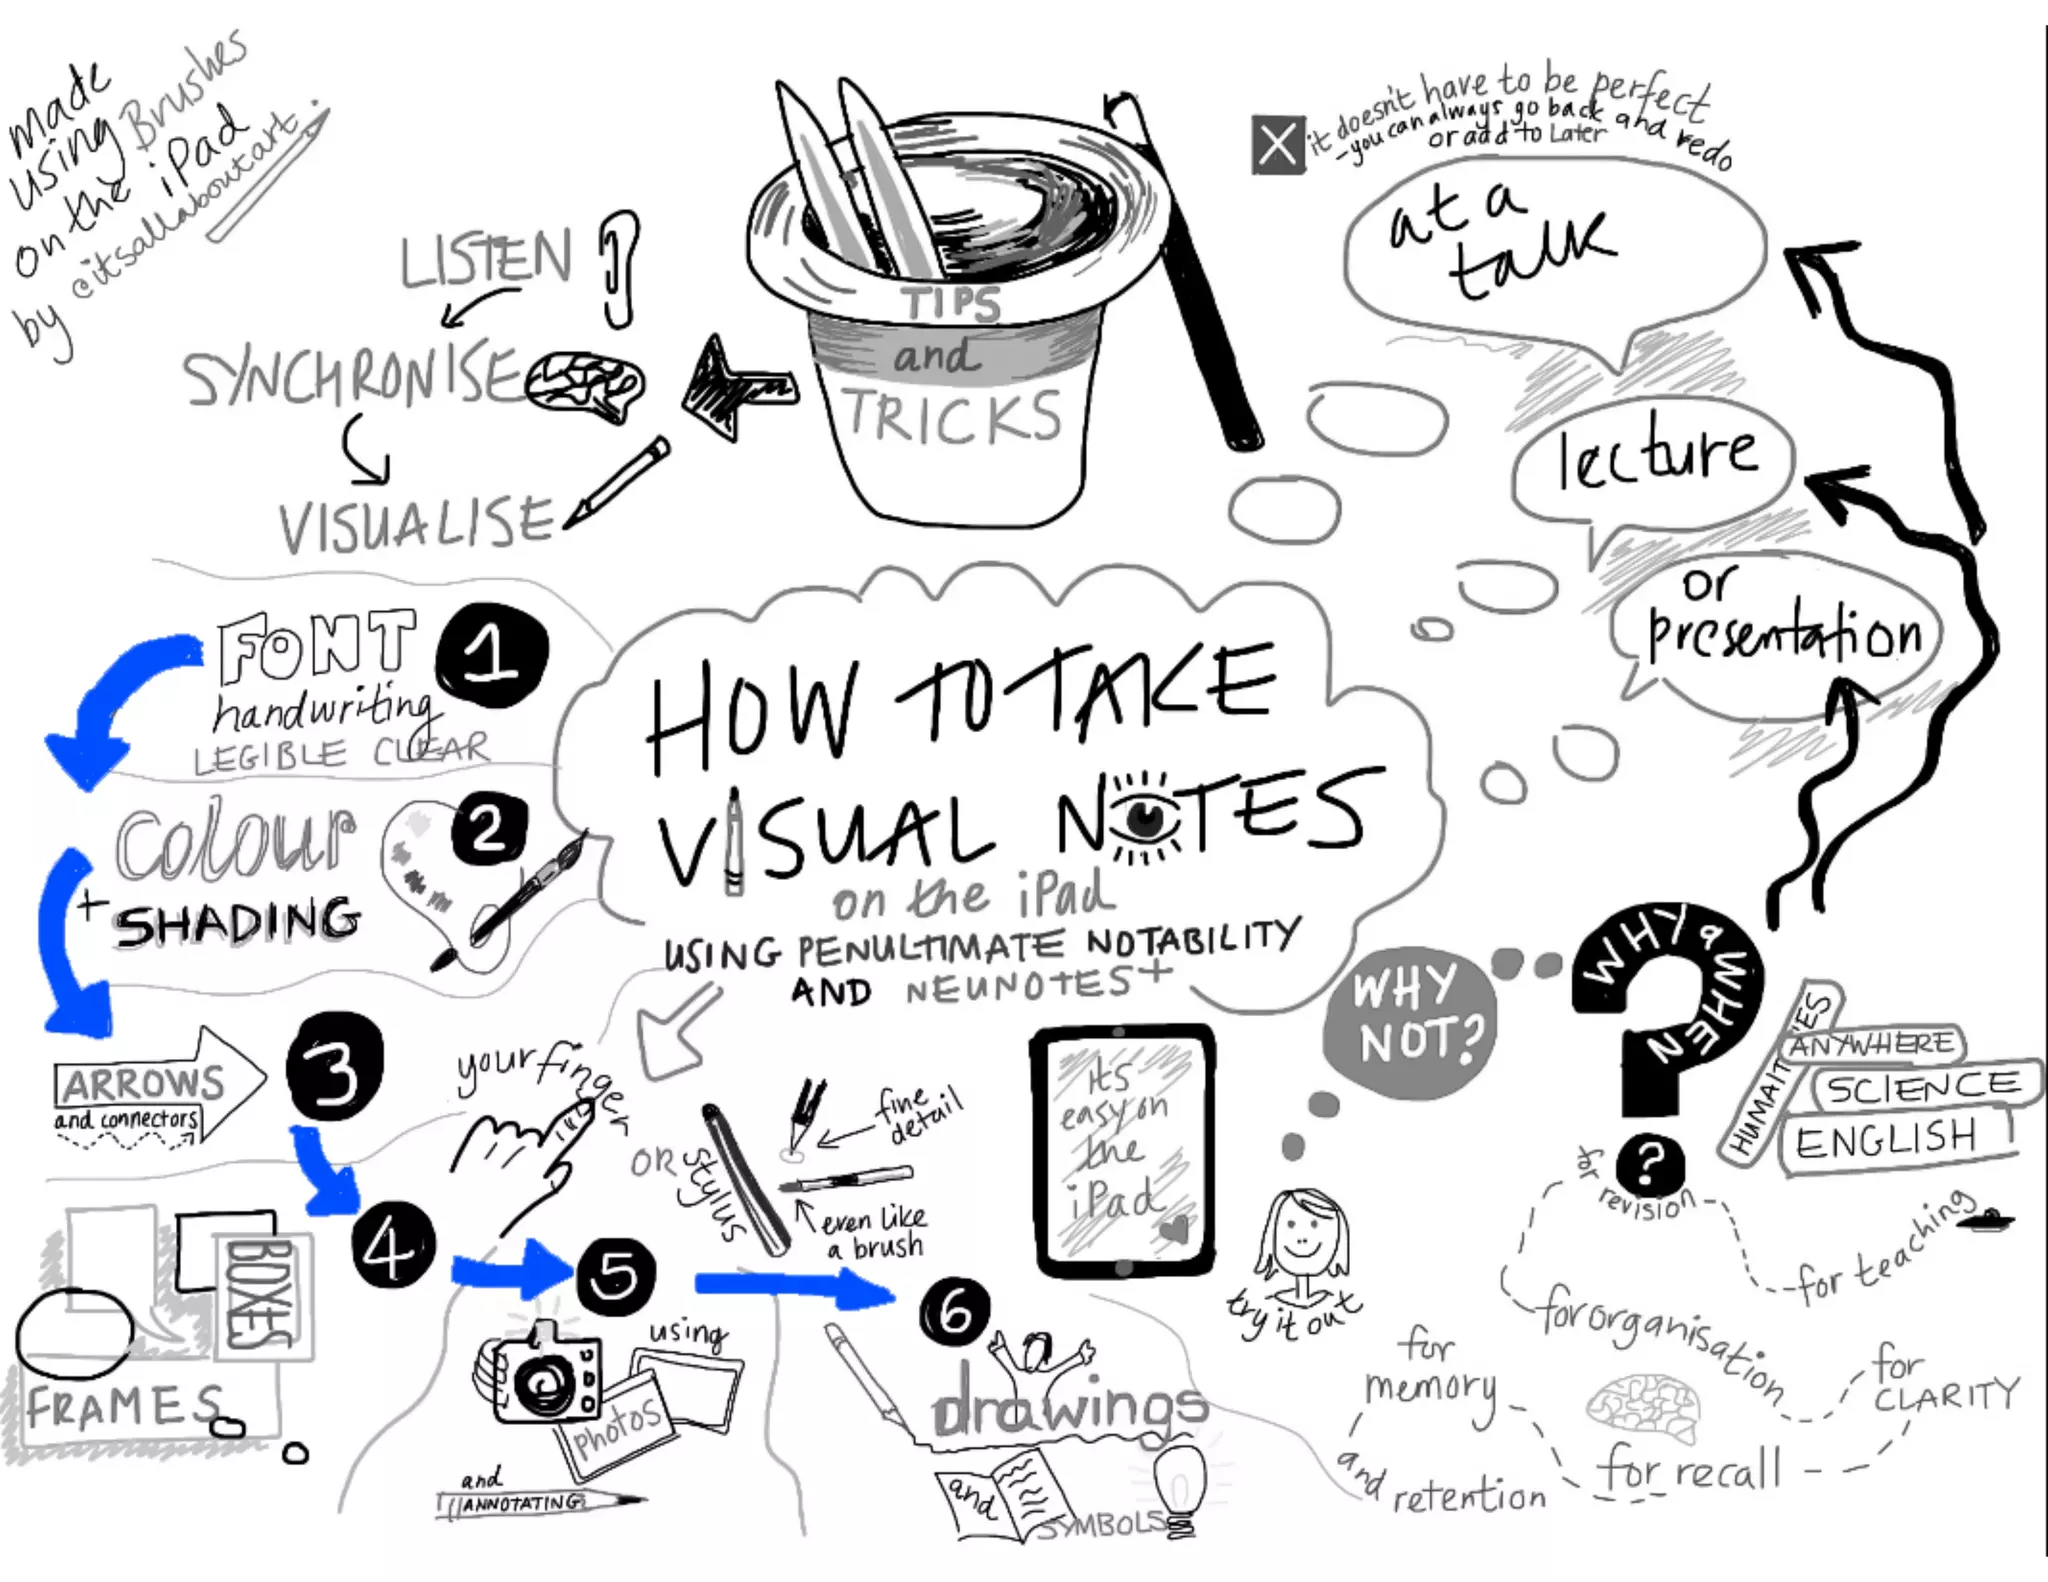 made
using Brushes
on the iPad
by @itsallaboutart.
LISTEN
SYNCHRONISE
VISUALISE
TIPS
and
TRICKS
X
it doesn't have to be perfect
- you can always go back and redo
or add to Later
at a
talk
lecture
or
presentation
HOW TO TAKE
VISUAL NOTES
on the iPad
USING PENULTIMATE NOTABILITY
AND NEUNOTES+
FONT
1
handwriting
LEGIBLE CLEAR
colour
2
+ SHADING
3
ARROWS
and connectors
4
BOXES
FRAMES
5
using
photos
and
ANNOTATING
6
drawings
and
SYMBOLS
your finger
OR stylus
fine
detail
even like
a brush
its
easy on
the
iPad
WHY
NOT?
try it out
WHY & WHEN
?
HUMAITIES
ANYWHERE
SCIENCE
ENGLISH
for revision
for teaching
for organisation
for
CLARITY
for recall
for
memory
and retention